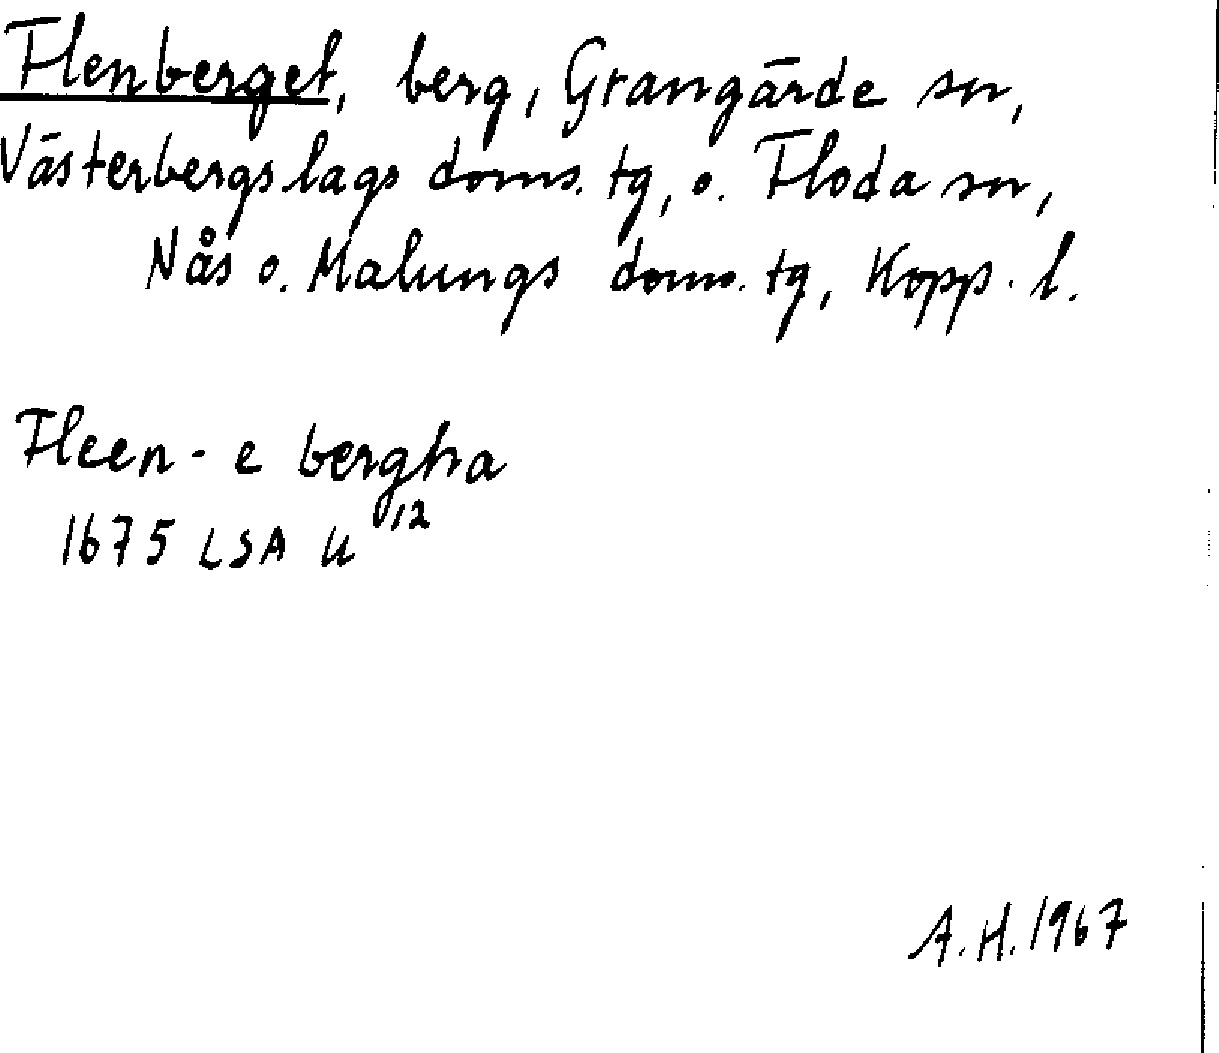 Flenberget, berg, Grangärde sn,
Västerbergslags doms. tg, o. Floda sn,
Nås o. Malungs doms. tg, Kopp. l.
Fleen-e bergha
1675 LSA U 12
A.H. 1967